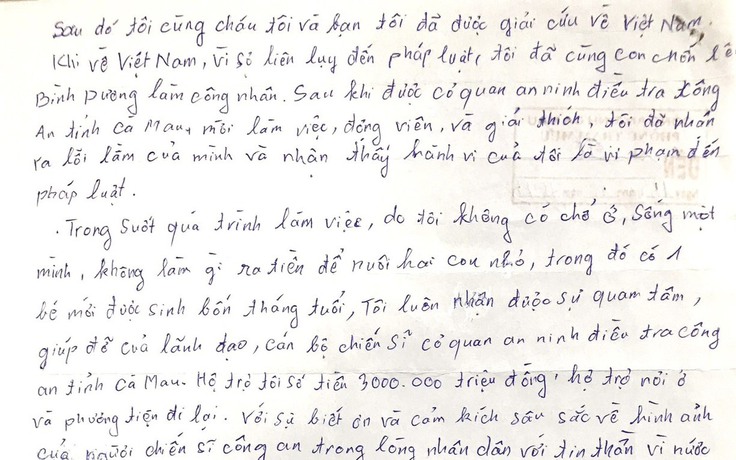 Sau đó tôi cùng cháu tôi và bạn tôi đã được giải cứu về Việt Nam.
Khi về Việt Nam, vì sợ liên lụy đến pháp luật, tôi đã cùng con chốn lên
Bình Dương làm công nhân. Sau khi được cơ quan an ninh điều tra Công
An tỉnh Cà Mau, mời làm việc, động viên, và giải thích, tôi đã nhận
ra lỗi lầm của mình và nhận thấy hành vi của tôi là vi phạm đến
pháp luật.
. Trong suốt quá trình làm việc, do tôi không có chổ ở, sống một
mình, không làm gì ra tiền để nuôi hai con nhỏ, trong đó có 1
bé mới được sinh bốn tháng tuổi, Tôi luôn nhận được sự quam tâm,
giúp đỡ của lãnh đạo, cán bộ chiến sĩ cơ quan an ninh điều tra công
an tỉnh Cà Mau. Hệ trợ tôi số tiền 3000.000 triệu đồng, hợ trợ nơi ở
và phương tiện đi lại. Với sự biết ơn và cảm kích sâu sắc về hình ảnh
của người chiến sĩ công an trong lòng nhân dân với tin thần vì nước